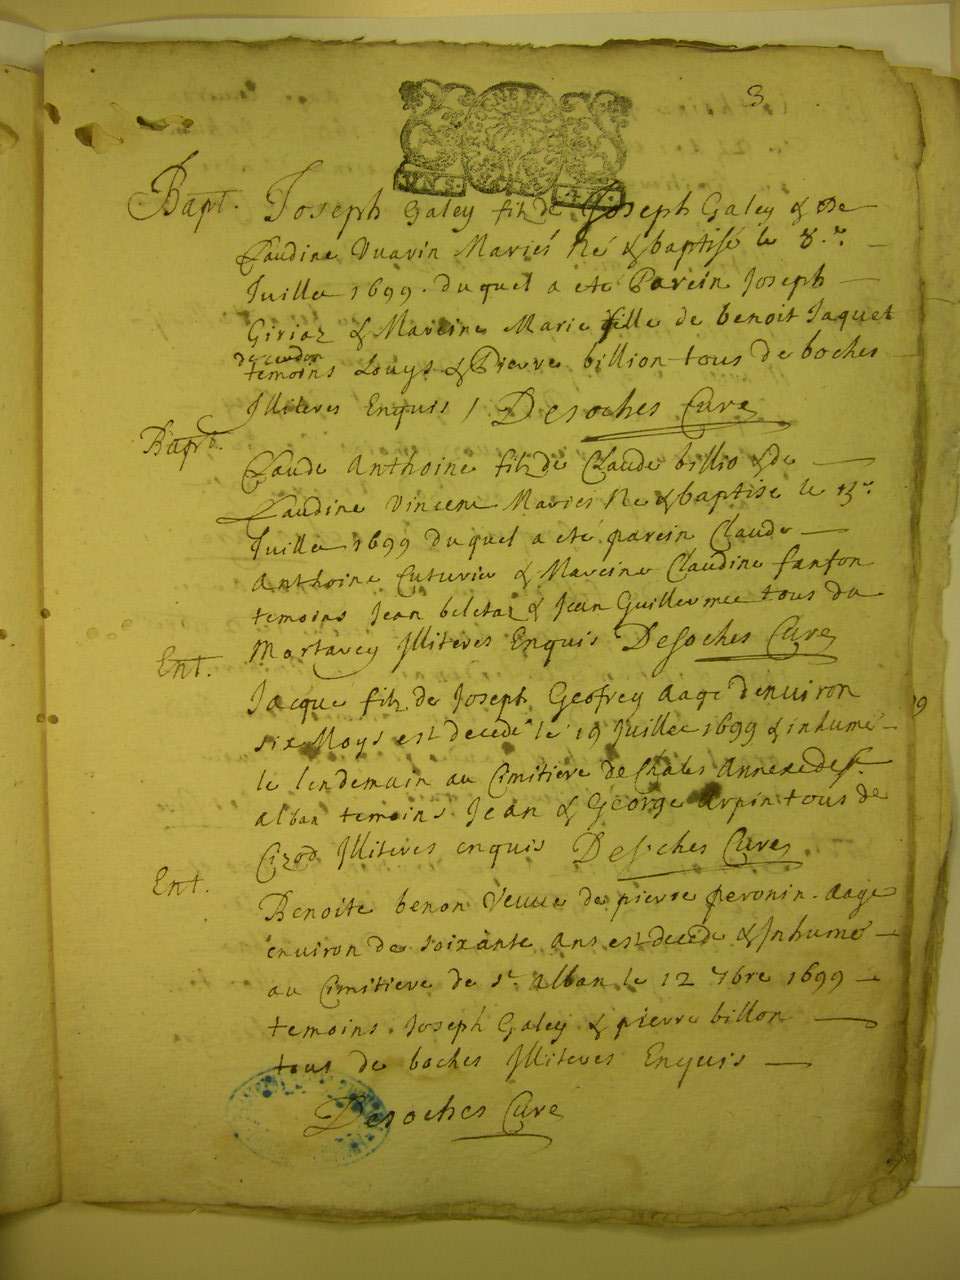 3
Bapt. Joseph Galey filz de Joseph Galey & de
Claudine Vuarin Mariés Né & baptisé le 8.e
Juillet 1699. duquel a eté Parein Joseph
Giriaz & Mareine Marie fille de benoit Jaquet
de cerdon
temoins Louys & Pierre billion tous de boches
Illiteres Enquis / Desoches Curé
Bapt.
Claude Anthoine filz de Claude billio & de
Claudine Vincent Mariés Né & baptise le
Juillet 1699 duquel a eté parein Claude
Anthoine Cuturier & Mareine Claudine fanton
temoins Jean beletaz & Jean Guillermee tous du
Mortarey Illiteres Enquis Desoches Curé
Ent.
Jacque filz de Joseph Geofrey aagé d'enuiron
six Moys est decedé le 19 Juillet 1699 & inhumé
le lendemain au Cimitiere de Chales Annexe de st.
alban temoins Jean & George Arpin tous de
Cizod Illiteres enquis Desoches Curé
Ent.
Benoite benon Veuue de pierre peronin aagé
enuiron de soixante ans est decede & Inhumé
au Cimitiere de st. alban le 12 7bre 1699
temoins Joseph Galey & pierre billon
tous de boches Illiteres Enquis
Desoches Curé